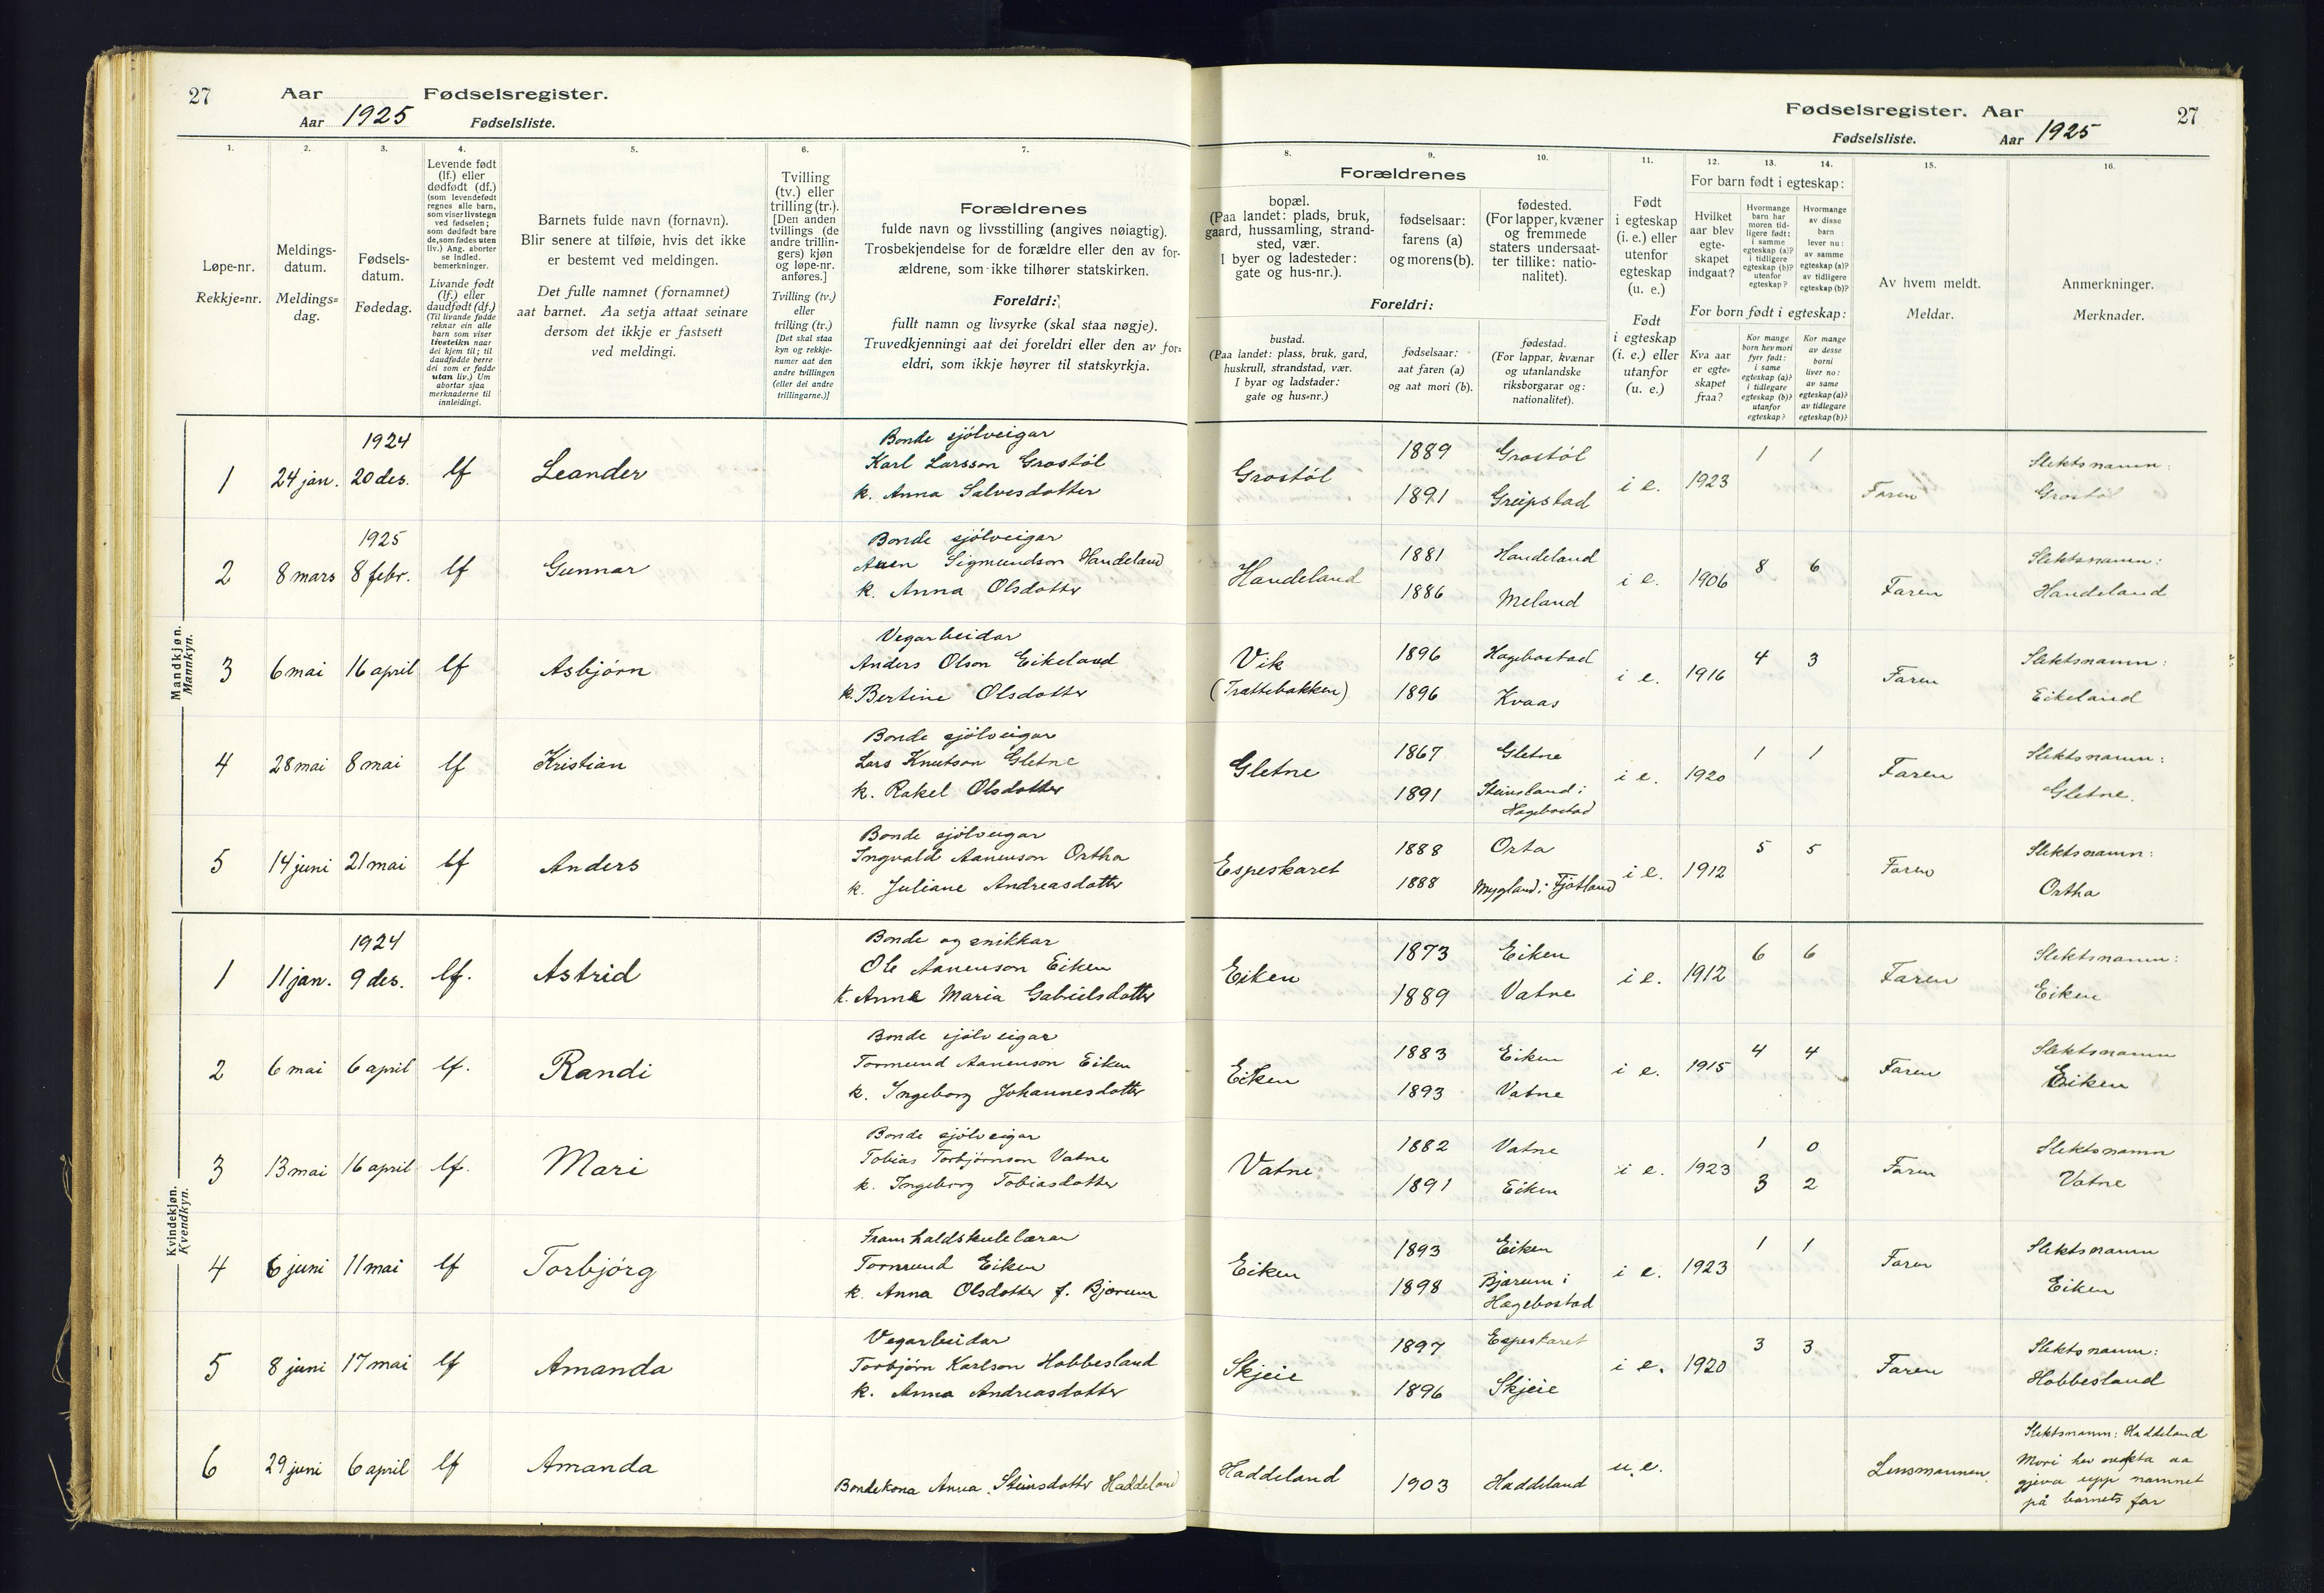 27
Aar
Fødselsregister.
Aar 1925
Fødselsliste.
Fødselsregister. Aar
27
Fødselsliste.
Aar 1925
1.
Løpe-nr.
Rekkje=nr.
2.
Meldings-
datum.
Meldings=
dag.
3.
Fødsels-
datum.
Fødedag.
4.
Levende født
(lf.) eller
dødfødt (df.)
(som levendefødt
regnes alle barn,
som viser livstegn
ved fødselen;
som dødfødt bare
de, som fødes uten
liv.) Ang. aborter
se indled.
bemerkninger.
Livande født
(lf.) eller
daudfødt (df.)
(Til livande fødde
reknar ein alle
barn som viser
livsteikn naar
dei kjem til; til
daudfødde berre
dei som er fødde
utan liv.) Um
abortar sjaa
merknaderne til
innleidingi.
5.
Barnets fulde navn (fornavn).
Blir senere at tilføie, hvis det ikke
er bestemt ved meldingen.
Det fulle namnet (fornamnet)
aat barnet. Aa setja attaat seinare
dersom det ikkje er fastsett
ved meldingi.
6.
Tvilling
(tv.) eller
trilling (tr.).
[Den anden
tvillings (de
andre trillin-
gers) kjøn
og løpe-nr.
anføres.]
Tvilling (tv.)
eller
trilling (tr.)
[Det skal staa
kyn og rekkje-
numer aat den
andre tvillingen
(eller dei andre
trillingarne.)]
7.
Forældrenes
fulde navn og livsstilling (angives nøiagtig).
Trosbekjendelse for de forældre eller den av for-
ældrene, som ikke tilhører statskirken.
Foreldri:
fullt namn og livsyrke (skal staa nøgje).
Truvedkjenningi aat dei foreldri eller den av for=
eldri, som ikkje høyrer til statskyrkja.
Forældrenes
8.
bopæl.
(Paa landet: plads, bruk,
gaard, hussamling, strand-
sted, vær.
I byer og ladesteder:
gate og hus-nr.).
9.
fødselsaar:
farens (a)
og morens (b).
10.
fødested.
(For lapper, kvæner
og fremmede
staters undersaat-
ter tillike: natio-
nalitet).
Foreldri:
bustad.
(Paa landet: plass, bruk, gard,
huskrull, strandstad, vær.
I byar og ladstader:
gate og hus=nr.)
fødselsaar:
aat faren (a)
og aat mori (b).
fødestad.
(For lappar, kvænar
og utanlandske
riksborgarar og:
nationalitet).
11.
Født
i egteskap
(i. e.) eller
utenfor
egteskap
(u. e.)
Født
i egteskap
(i. e.) eller
utanfor
(u. e.)
For barn født i egteskap:
12.
Hvilket
aar blev
egte-
skapet
indgaat?
13.
Hvormange
barn har
moren tid-
ligere født:
i samme
egteskap (a)?
i tidligere
egteskap (b)?
utenfor
egteskap?
14.
Hvormange
av disse
barn
lever nu:
av samme
egteskap (a)?
av tidligere
egteskap (b)?
For born født i egteskap:
Kva aar
er egte=
skapet
fraa?
Kor mange
born hev mori
fyrr født:
i same
egteskap (a)?
i tidlegare
egteskap (b)?
utanfor
egteskap?
Kor mange
av desse
borni
liver no:
av same
egteskap (a)?
av tidlegare
egteskap (b)?
15.
Av hvem meldt.
Meldar.
16.
Anmerkninger.
Merknader.
Mandkjøn.
Mannkyn.
1 24 jan. 1924 20 des. lf Leander
Bonde sjölveigar
Karl Larsson Grostöl
k. Anna Salvesdotter
Grostöl 1889 Grostöl
1891 Greipstad
i e. 1923 1 1 Faren
Slektsnamn:
Grostöl
2 8 mars 1925 8 febr. lf Gunnar
Bonde sjölveigar
Anen Sigmundson Handeland
k. Anna Olsdotter
Handeland 1881 Handeland
1886 Meland
i e. 1906 8 6 Faren
Slektsnamn:
Handeland
3 6 mai 16 april lf Asbjörn
Vegarbeidar
Anders Olson Eikeland
k. Bertine Olsdotter
Vik
(Trattebakken)
1896 Hægebostad
1896 Kvaas
i e. 1916 4 3 Faren
Slektsnamn:
Eikeland
4 28 mai 8 mai lf Kristian
Bonde sjölveigar
Lars Knutson Gletne
k. Rakel Olsdotter
Gletne 1867 Gletne
1891 Steinsland i
Hægebostad
i e. 1920 1 1 Faren
Slektsnamn:
Gletne.
5 14 juni 21 mai lf Anders
Bonde sjölveigar
Ingvald Aanenson Ortha
k. Juliane Andreasdotter
Espeskaret 1888 Orta
1888 Mygland i Fjotland
i e. 1912 5 5 Faren
Slektsnamn:
Ortha
Kvindekjøn.
Kvendkyn.
1 11 jan. 1924 9 des. lf. Astrid
Bonde og snikkar
Ole Aanenson Eiken
k. Anna Maria Gabrielsdotter
Eiken 1873 Eiken
1889 Vatne
i e. 1912 6 6 Faren
Slektsnamn:
Eiken
2 6 mai 6 april lf. Randi
Bonde sjölveigar
Tormund Aanenson Eiken
k. Ingeborg Johannesdotter
Eiken 1883 Eiken
1893 Vatne
i e. 1915 4 4 Faren
Slektsnamn
Eiken
3 13 mai 16 april lf. Mari
Bonde sjölveigar
Tobias Torbjörnson Vatne
k. Ingeborg Tobiasdotter
Vatne 1882 Vatne
1891 Eiken
i e. 1923 1 0
3 2
Faren
Slektsnamn
Vatne
4 6 juni 11 mai lf Torbjörg
Framhaldskulelærar
Tormund Eiken
k. Anna Olsdotter f. Bjærum
Eiken 1893 Eiken
1898 Bjærum i
Hægebostad
i e. 1923 1 1 Faren
Slektsnamn
Eiken
5 8 juni 17 mai lf Amanda
Vegarbeidar
Torbjörn Karlson Hobbesland
k. Anna Andreasdotter
Skjeie 1897 Espeskaret
1896 Skjeie
i e. 1920 3 3 Faren
Slektsnamn:
Hobbesland
6 29 juni 6 april lf Amanda
Bondekona Anna Steinsdotter Haddeland
Haddeland 1903 Haddeland
u.e. Lensmannen
Slektsnamn: Haddeland
Mori hev nekta aa
gjeva upp namnet
på barnets far